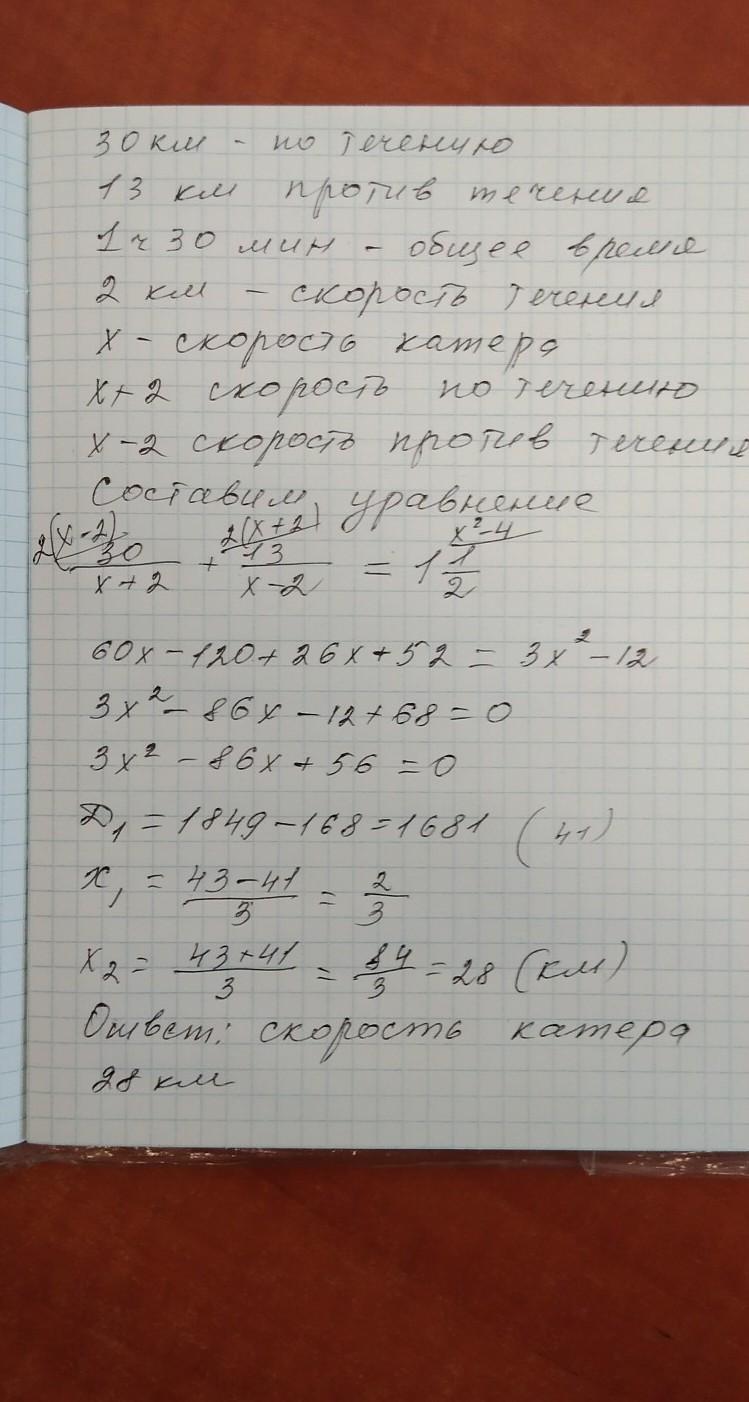 30 км - по течению
13 км против течения
1 ч 30 мин - общее время
2 км - скорость течения
x - скорость катера
x+2 скорость по течению
x-2 скорость против течения
Составим уравнение
2(x-2) 2(x+2) x²-4
30/(x+2) + 13/(x-2) = 1 1/2
60x-120+26x+52 = 3x²-12
3x²-86x-12+68=0
3x²-86x+56=0
Д₁=1849-168=1681 (41)
x₁ = (43-41)/3 = 2/3
x₂ = (43+41)/3 = 84/3 = 28 (км)
Ответ: скорость катера
28 км